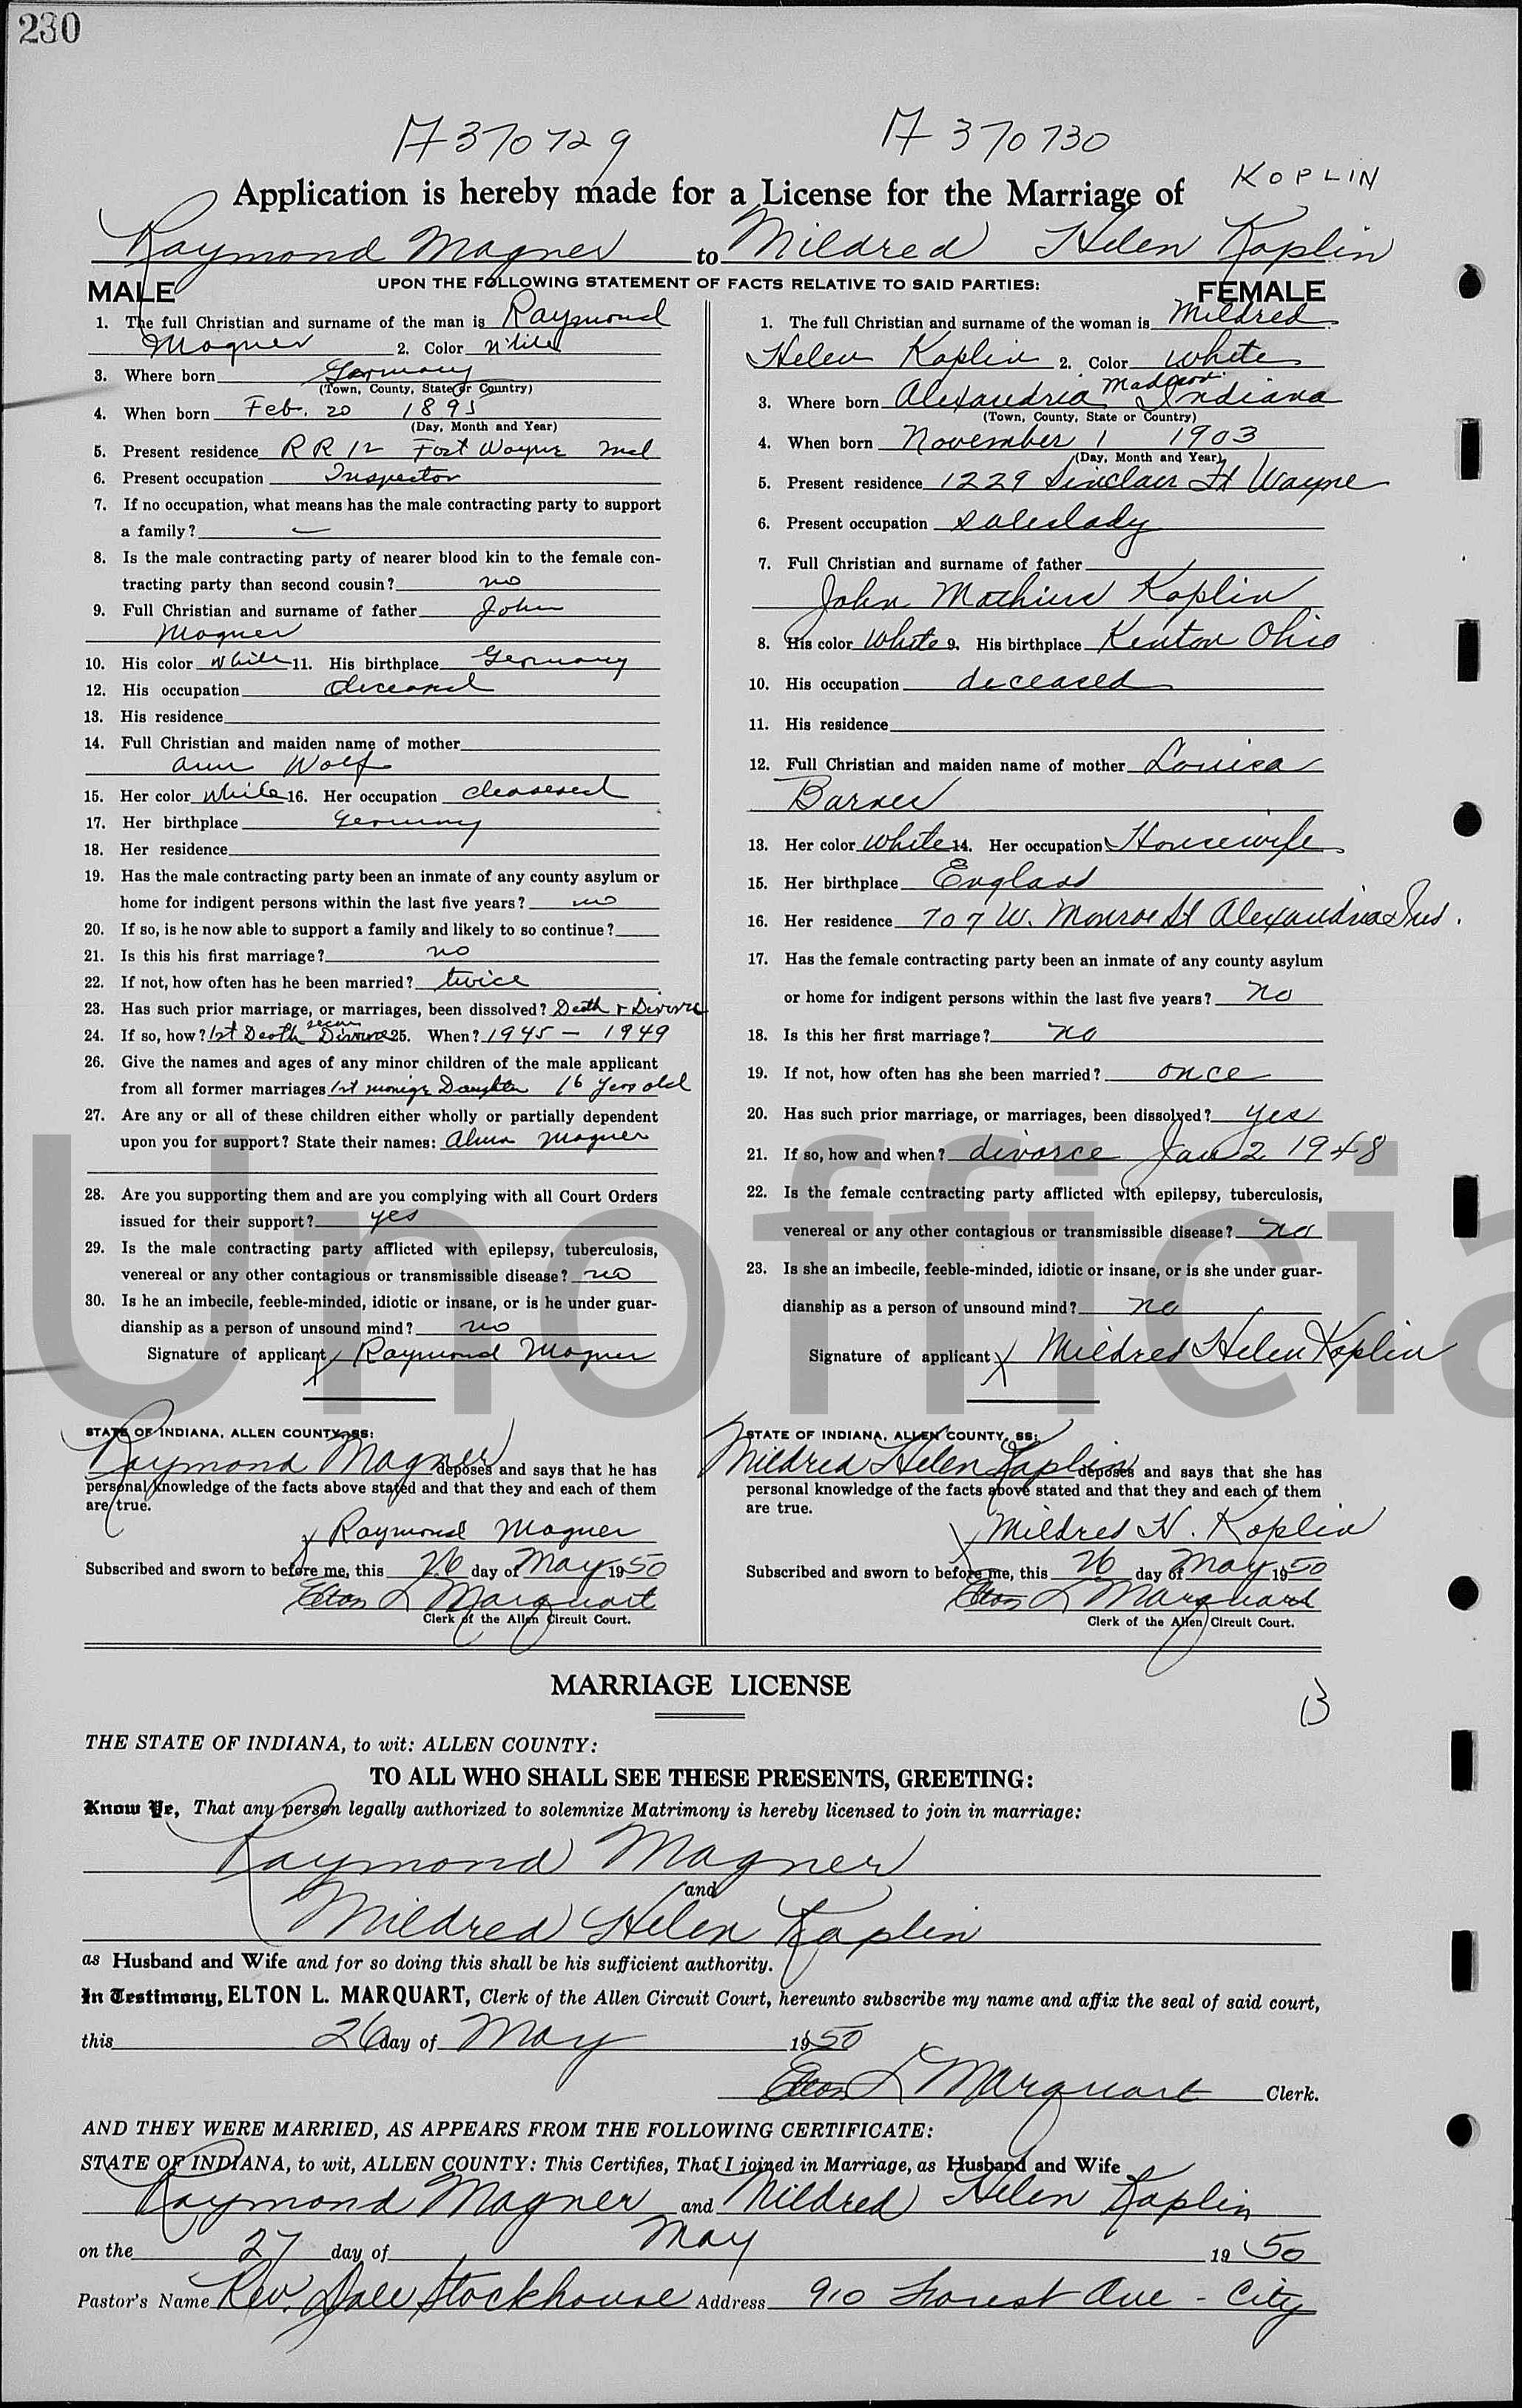 230
A 370729 A 370730
KOPLIN
Application is hereby made for a License for the Marriage of
Raymond Magner to Mildred Helen Koplin
UPON THE FOLLOWING STATEMENT OF FACTS RELATIVE TO SAID PARTIES:
MALE
1. The full Christian and surname of the man is Raymond
Magner 2. Color White
3. Where born Germany
(Town, County, State or Country)
4. When born Feb. 20 1895
(Day, Month and Year)
5. Present residence R R 12 Fort Wayne Ind
6. Present occupation Inspector
7. If no occupation, what means has the male contracting party to support
a family? —
8. Is the male contracting party of nearer blood kin to the female con-
tracting party than second cousin? no
9. Full Christian and surname of father John
Magner
10. His color white 11. His birthplace Germany
12. His occupation deceased
13. His residence
14. Full Christian and maiden name of mother
Ann Wolf
15. Her color white 16. Her occupation deceased
17. Her birthplace Germany
18. Her residence
19. Has the male contracting party been an inmate of any county asylum or
home for indigent persons within the last five years? no
20. If so, is he now able to support a family and likely to so continue?
21. Is this his first marriage? no
22. If not, how often has he been married? twice
23. Has such prior marriage, or marriages, been dissolved? Death & Divorce
24. If so, how? 1st Death Divorce 25. When? 1945 – 1949
26. Give the names and ages of any minor children of the male applicant
from all former marriages 1st Daughter 16 years old
27. Are any or all of these children either wholly or partially dependent
upon you for support? State their names: Magner
28. Are you supporting them and are you complying with all Court Orders
issued for their support? yes
29. Is the male contracting party afflicted with epilepsy, tuberculosis,
venereal or any other contagious or transmissible disease? no
30. Is he an imbecile, feeble-minded, idiotic or insane, or is he under guar-
dianship as a person of unsound mind? no
Signature of applicant x Raymond Magner
STATE OF INDIANA, ALLEN COUNTY, SS:
Raymond Magner deposes and says that he has
personal knowledge of the facts above stated and that they and each of them
are true.
x Raymond Magner
Subscribed and sworn to before me, this 26 day of May 1950
Elton L Marquart
Clerk of the Allen Circuit Court.
FEMALE
1. The full Christian and surname of the woman is Mildred
Helen Koplin 2. Color white
3. Where born Alexandria Madison Indiana
(Town, County, State or Country)
4. When born November 1 1903
(Day, Month and Year)
5. Present residence 1229 Sinclair Ft Wayne
6. Present occupation saleslady
7. Full Christian and surname of father
John Koplin
8. His color white 9. His birthplace Kenton Ohio
10. His occupation deceased
11. His residence
12. Full Christian and maiden name of mother Louisa
Barnes
13. Her color white 14. Her occupation Housewife
15. Her birthplace England
16. Her residence 707 W. Monroe St Alexandria Ind.
17. Has the female contracting party been an inmate of any county asylum
or home for indigent persons within the last five years? no
18. Is this her first marriage? no
19. If not, how often has she been married? once
20. Has such prior marriage, or marriages, been dissolved? yes
21. If so, how and when? divorce Jan 2 1948
22. Is the female contracting party afflicted with epilepsy, tuberculosis,
venereal or any other contagious or transmissible disease? no
23. Is she an imbecile, feeble-minded, idiotic or insane, or is she under guar-
dianship as a person of unsound mind? no
Signature of applicant x Mildred Helen Koplin
STATE OF INDIANA, ALLEN COUNTY, SS:
Mildred Helen Koplin deposes and says that she has
personal knowledge of the facts above stated and that they and each of them
are true.
x Mildred H. Koplin
Subscribed and sworn to before me, this 26 day of May 1950
Elton L Marquart
Clerk of the Allen Circuit Court.
Unofficia
MARRIAGE LICENSE
B
THE STATE OF INDIANA, to wit: ALLEN COUNTY:
TO ALL WHO SHALL SEE THESE PRESENTS, GREETING:
Know Ye, That any person legally authorized to solemnize Matrimony is hereby licensed to join in marriage:
Raymond Magner
and
Mildred Helen Koplin
as Husband and Wife and for so doing this shall be his sufficient authority.
In Testimony, ELTON L. MARQUART, Clerk of the Allen Circuit Court, hereunto subscribe my name and affix the seal of said court,
this 26 day of May 1950
Elton L Marquart Clerk.
AND THEY WERE MARRIED, AS APPEARS FROM THE FOLLOWING CERTIFICATE:
STATE OF INDIANA, to wit, ALLEN COUNTY: This Certifies, That I joined in Marriage, as Husband and Wife
Raymond Magner and Mildred Helen Koplin
on the 27 day of May 1950
Pastor's Name Rev. Dale Stockhouse Address 910 Forest Ave - City